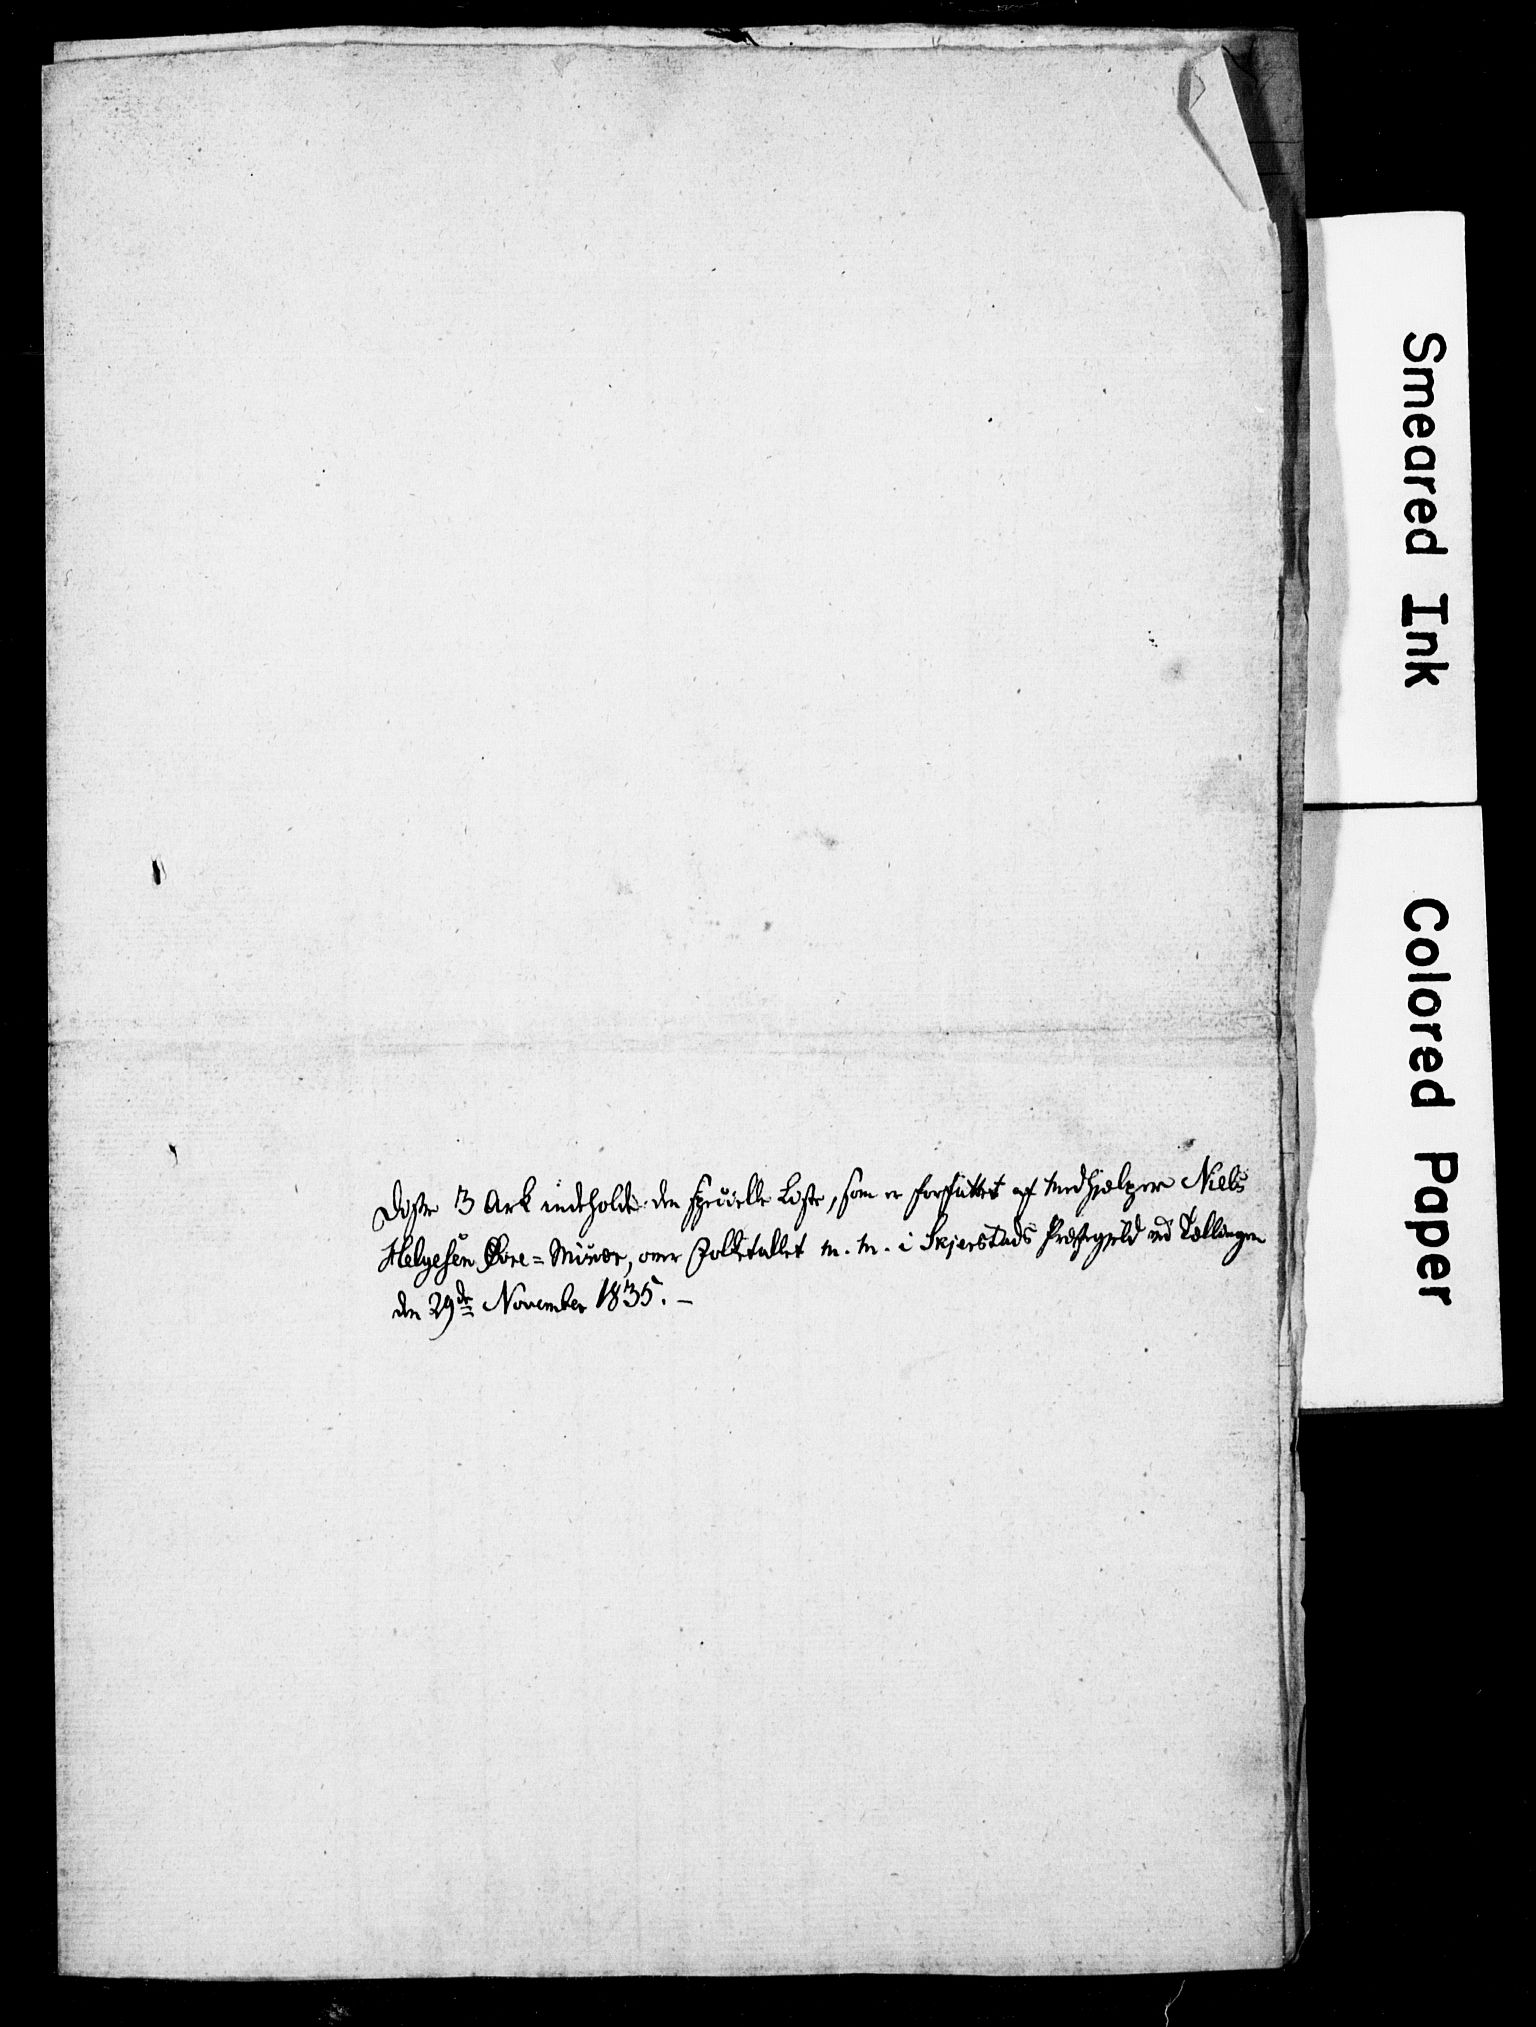 Disse 3 Ark indeholde den specielle Liste, som er forfattet af Medhjælper Niels
Helgesen Øvre=Misvær, over Folketallet m. m. i Skjerstads Præstegjeld ved Tællingen
den 29de November 1835. –
Smeared Ink
Colored Paper